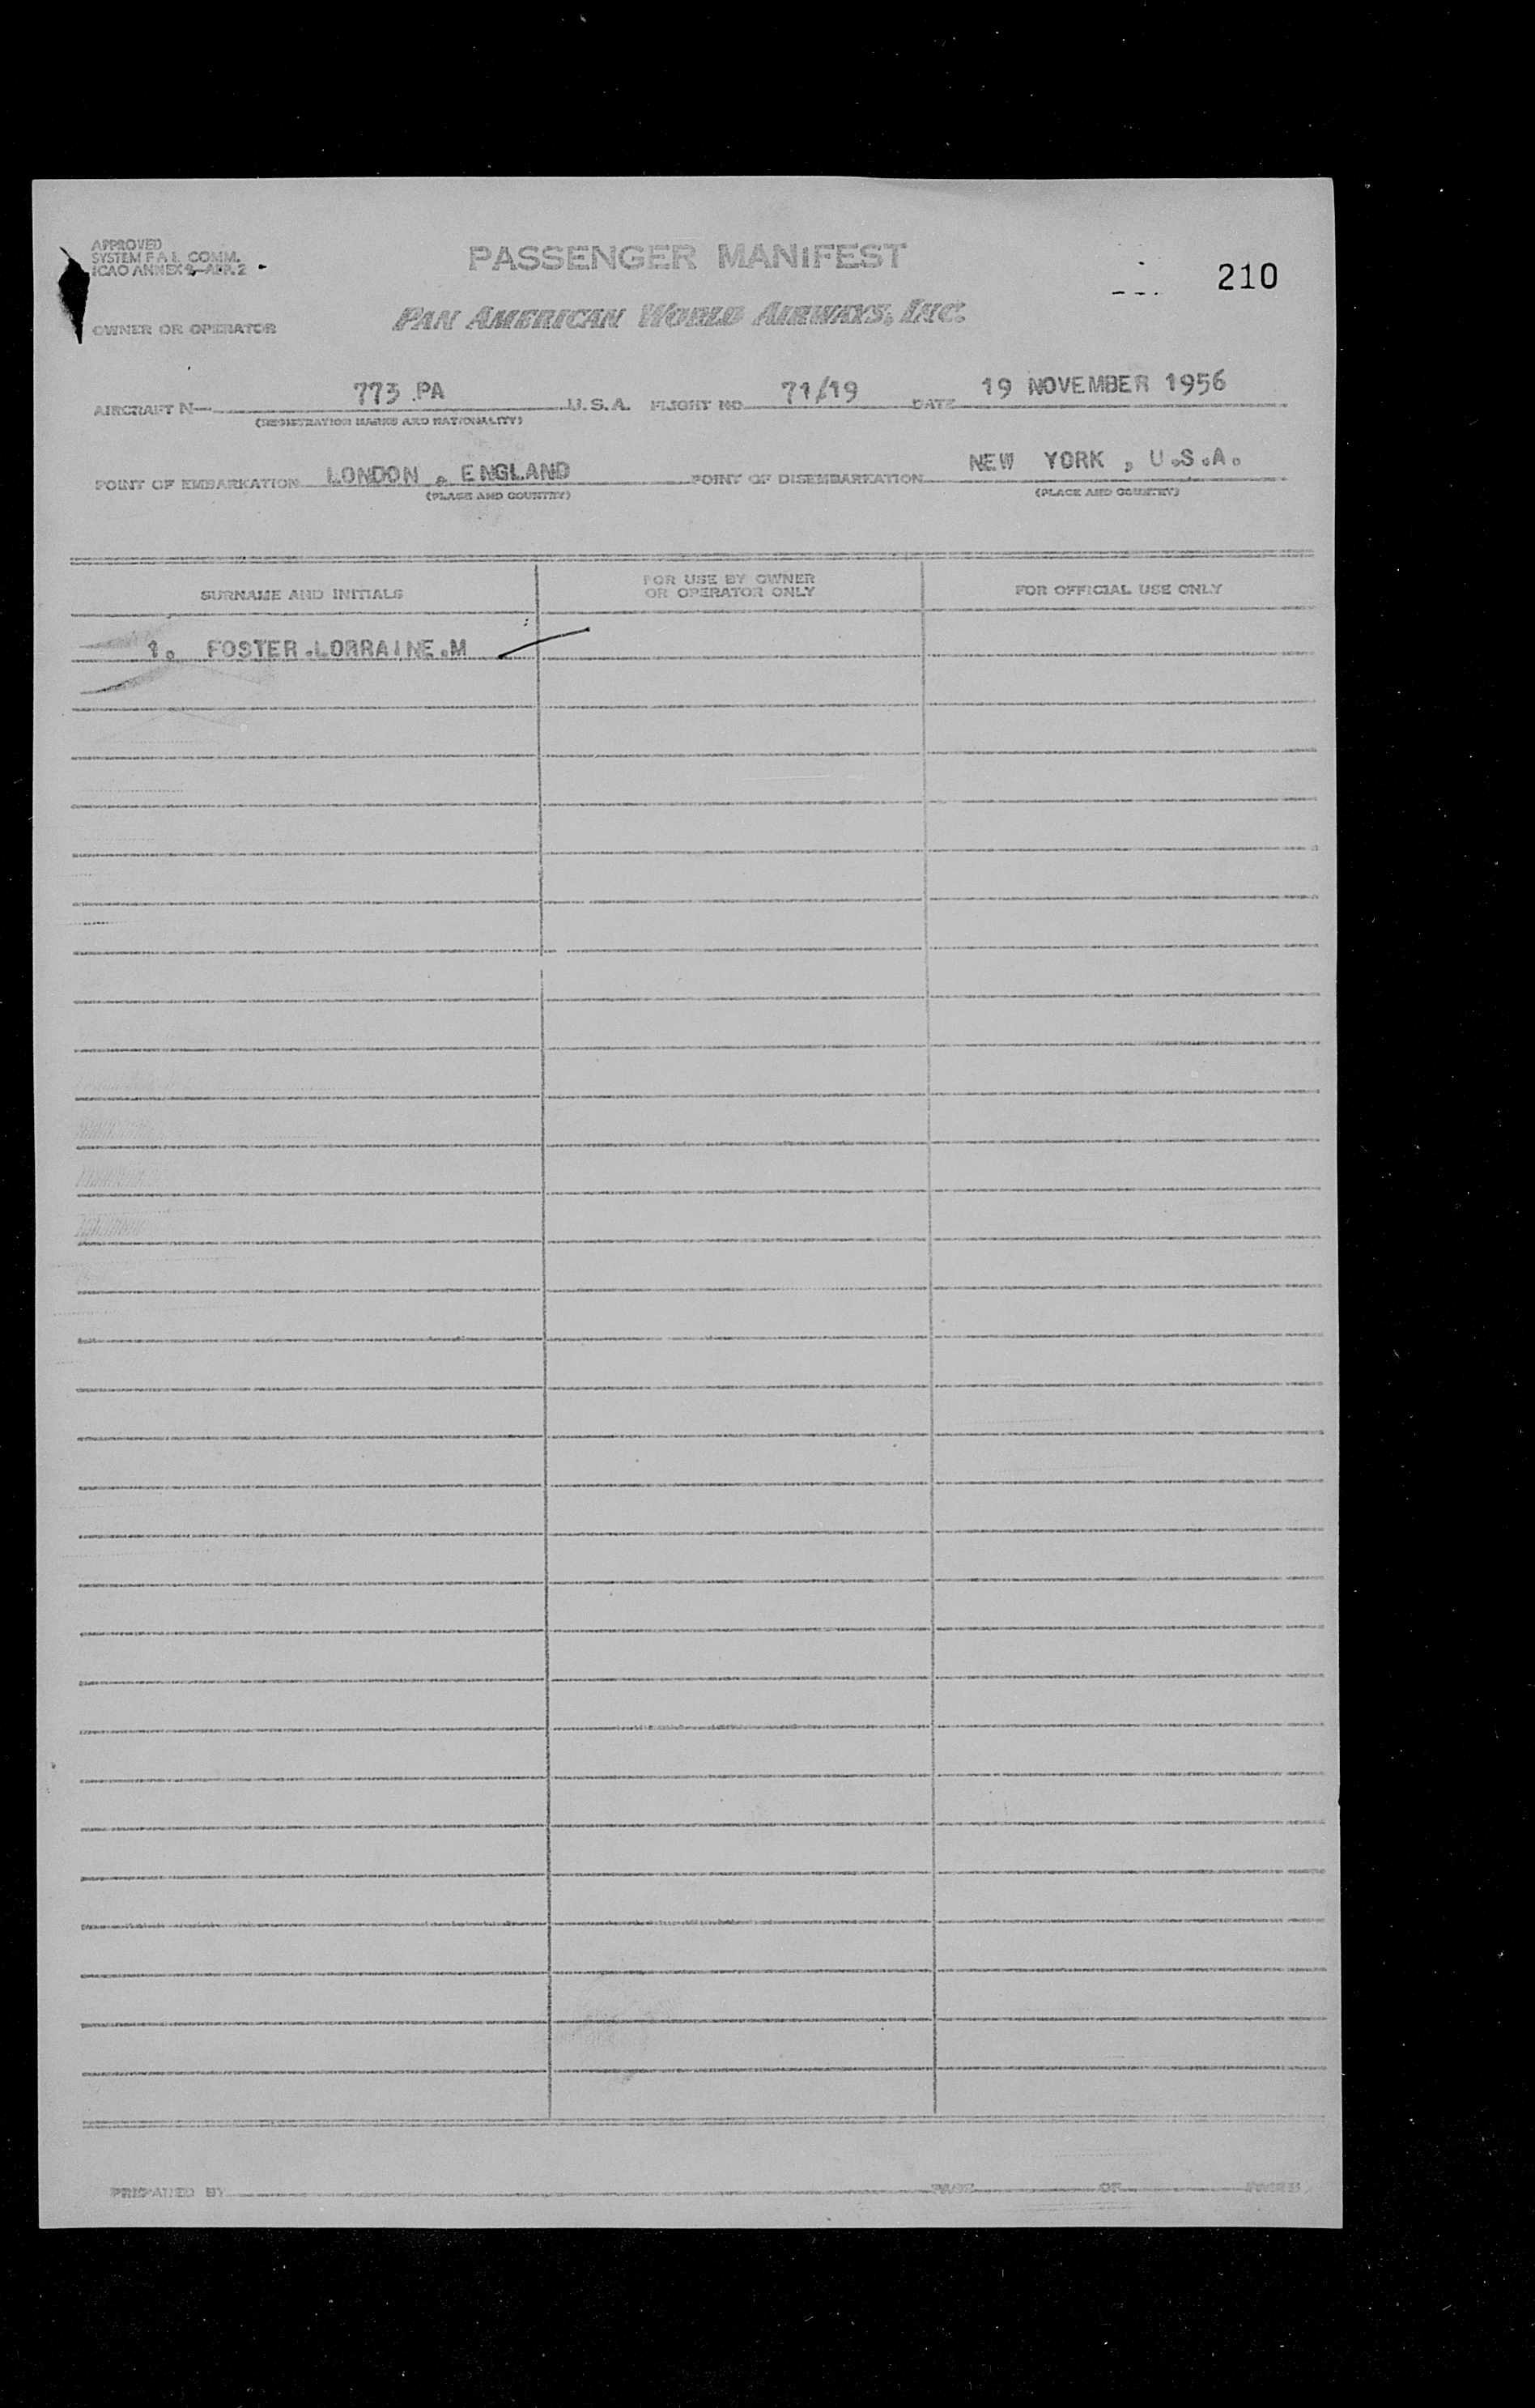 APPROVED
SYSTEM F A L COMM.
ICAO ANNEX 9-APP. 2
PASSENGER MANIFEST
210
OWNER OR OPERATOR
PAN AMERICAN WORLD AIRWAYS, INC.
AIRCRAFT N- 773 PA U.S.A. FLIGHT NO 71/19 DATE 19 NOVEMBER 1956
(REGISTRATION MARKS AND NATIONALITY)
POINT OF EMBARKATION LONDON , ENGLAND POINT OF DISEMBARKATION NEW YORK , U.S.A.
(PLACE AND COUNTRY) (PLACE AND COUNTRY)
SURNAME AND INITIALS
FOR USE BY OWNER
OR OPERATOR ONLY
FOR OFFICIAL USE ONLY
1. FOSTER.LORRAINE.M
PREPARED BY PAGE OF PAGES